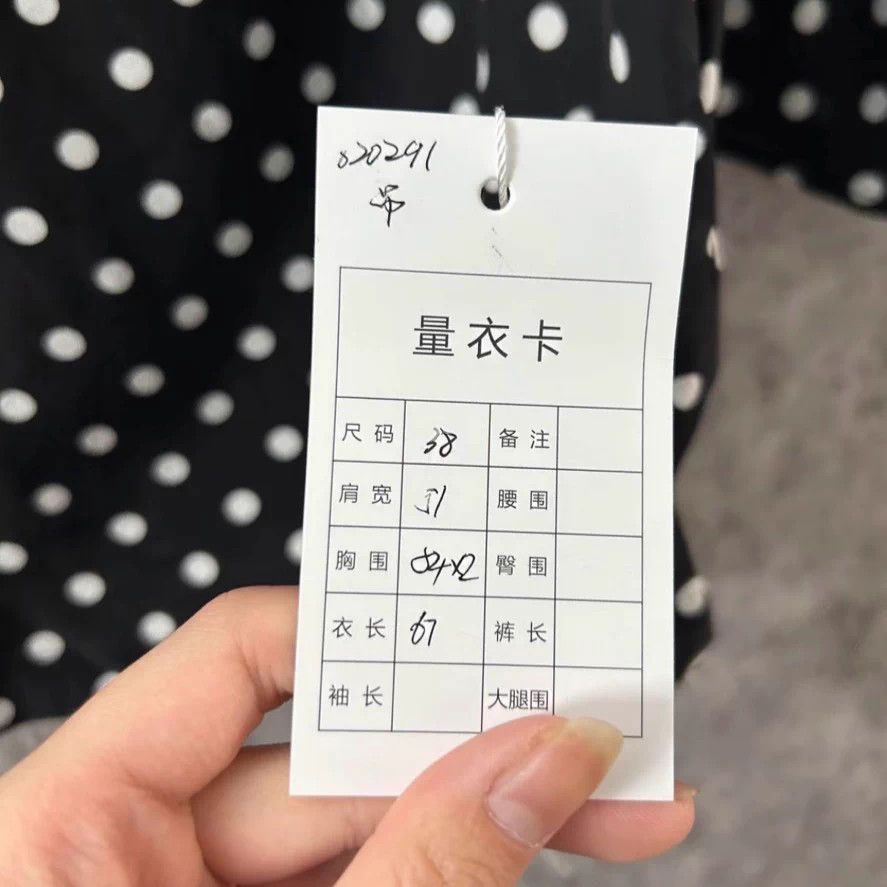 020291
吊
量衣卡
尺码 38 备注
肩宽 51 腰围
胸围 84x2 臀围
衣长 67 裤长
袖长 大腿围